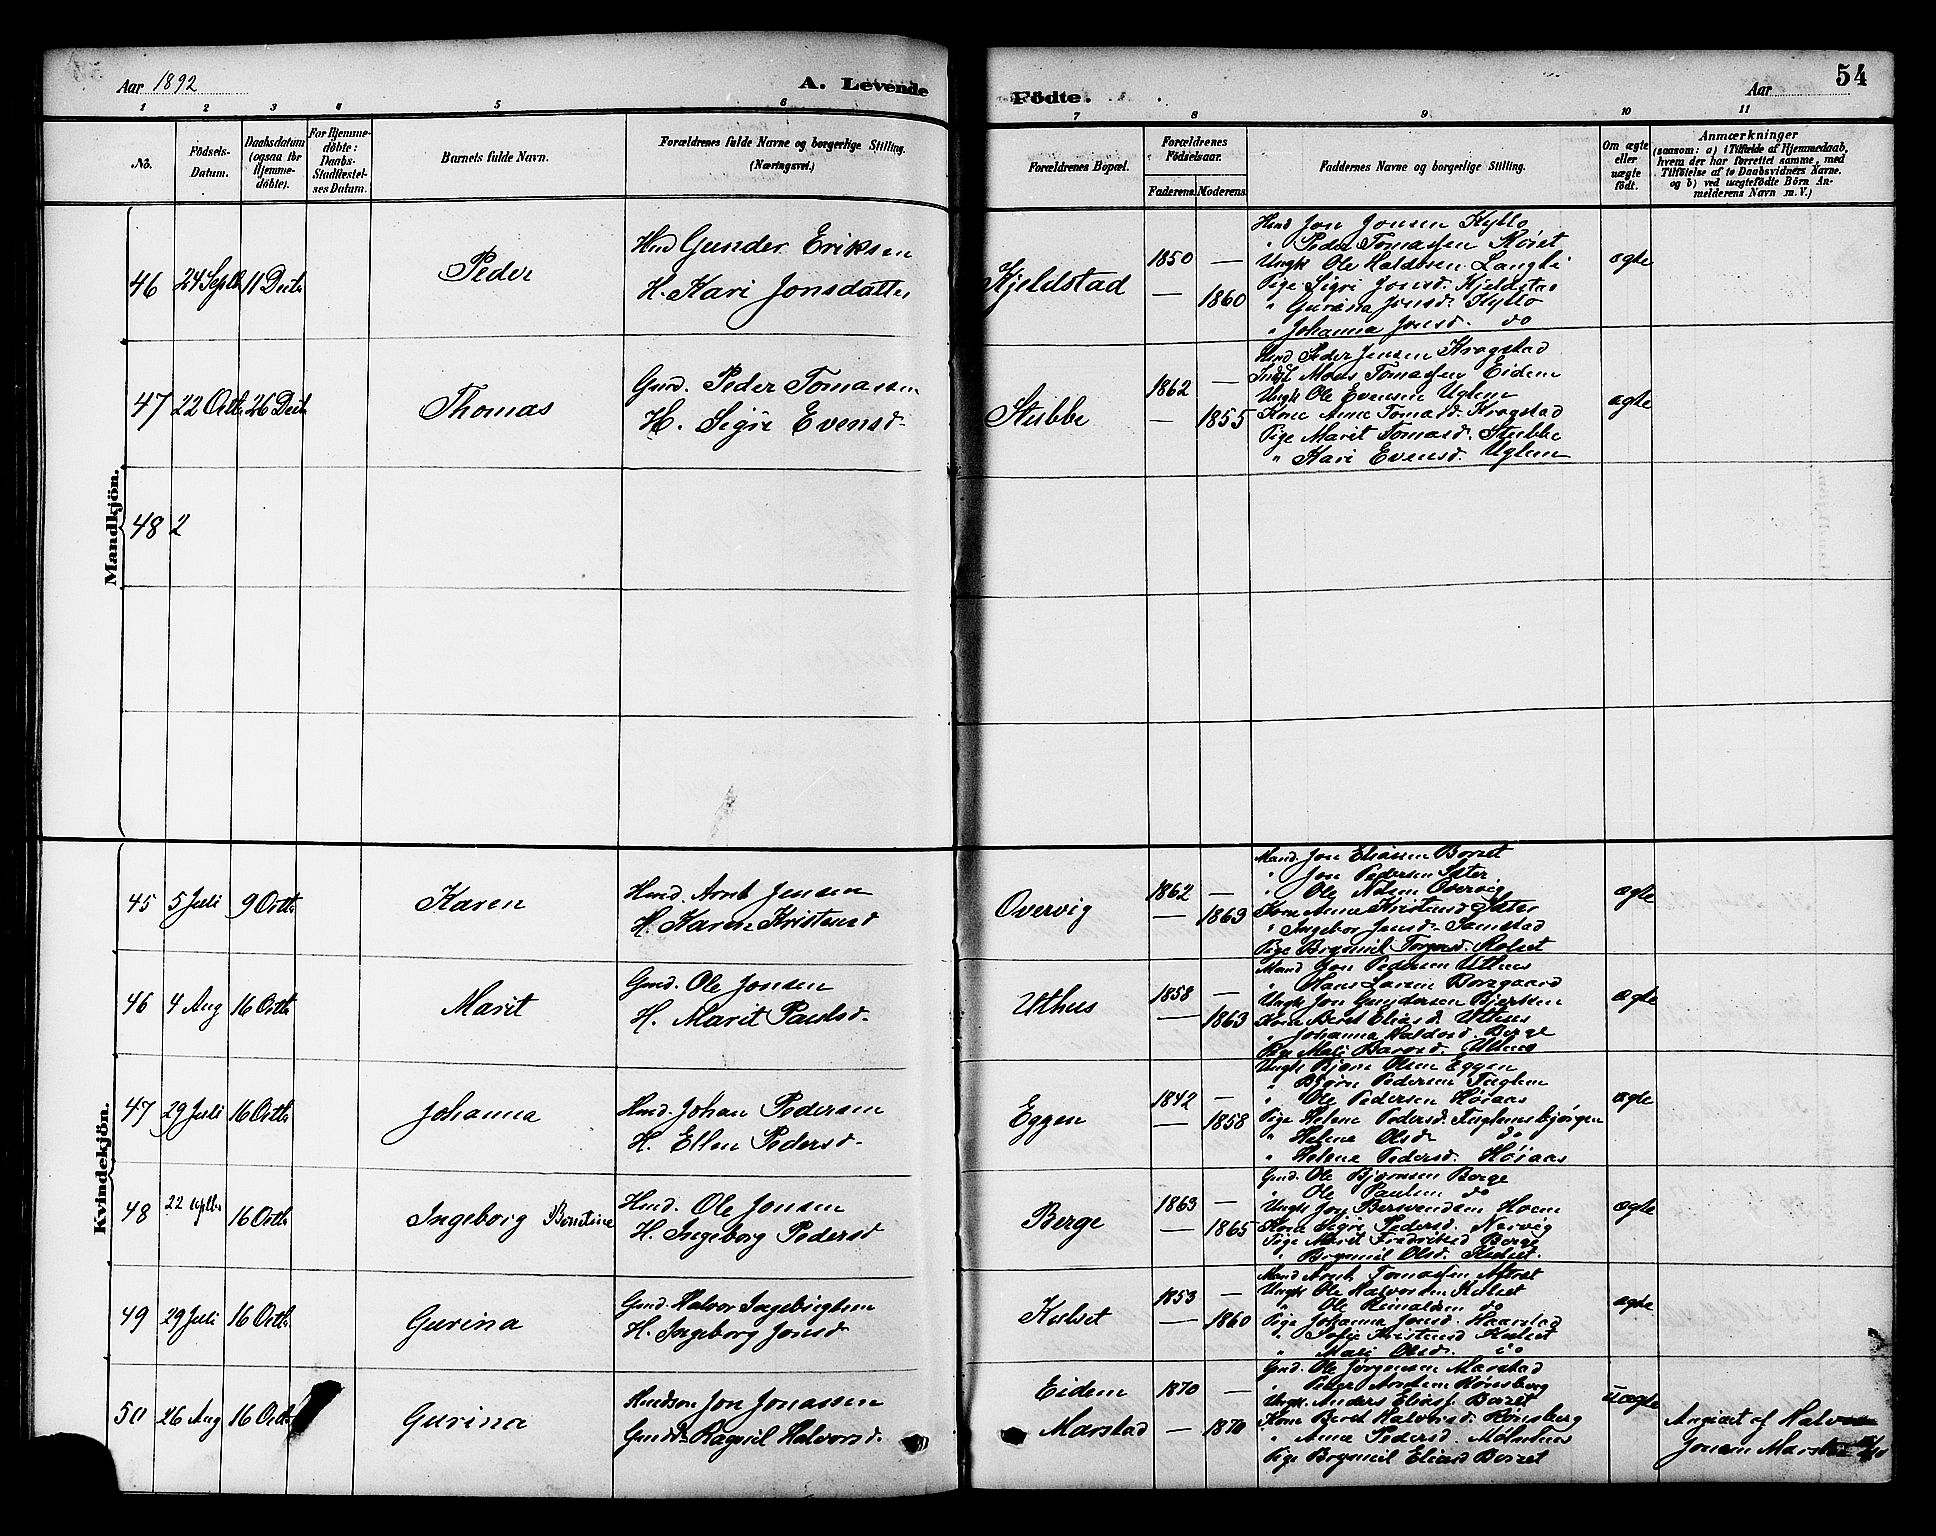 Aar 1892
A. Levende
Födte.
Aar
54
1 2 3 4 5 6 7 8 9 10 11
No.
Födsels-
Datum.
Daabsdatum
(ogsaa for
Hjemme-
døbte).
For Hjemme-
døbte:
Daabs-
Stadfæstel-
ses Datum.
Barnets fulde Navn.
Forældrenes fulde Navne og borgerlige Stilling.
(Næringsvei.)
Forældrenes Bopæl.
Forældrenes
Födselsaar.
Faderens. Moderens.
Faddernes Navne og borgerlige Stilling.
Om ægte
eller
uægte
födt.
Anmærkninger
(saasom: a) i Tilfælde af Hjemmedaab,
hvem der har forrettet samme, med
Tilföielse af to Daabsvidners Navne.
og b) ved uægtefödte Börn An-
melderens Navn m. V.)
Mandkjön.
46 24 Septb 11 Decb
Peder
Hmd Gunder Eriksen
H. Kari Jonsdatter
Kjeldstad
1850 —
— 1860
Hmd Jon Jonsen Kyllo
" Peder Tomassen Moiet
Ungk Ole Haldosen Langli
Pige Sigri Jonsd. Kjeldstad
" Gurina Jonsd. Kyllo
" Johanna Jonsd. do
ægte
47 22 Octb 26 Decb
Thomas
Gmd. Peder Tomassen
H. Sigri Evensd.
Stubbe
1862 —
— 1855
Hmd Peder Jensen Kragstad
Indst Mons Tomassen Eidem
Ungk Ole Evensen Uglem
Kone Anne Tomasd. Kragstad
Pige Marit Tomasd. Stubbe
" Kari Evensd. Uglem
ægte
48 2
Kvindekjön.
45 5 Juli 9 Octb
Karen
Hmd. Arnt Jensen
H. Karen Kristensd
Overvig
1862 —
— 1869
Mand. Jon Eliassen Borset
" Jon Pedersen Sæter
" Ole Nilsen Overvig
Kone Anne Kristensd Sæter
" Ingebor Jensd. Samstad
Pige Brynnil Torgersd. Kolset
ægte
46 4 Aug 16 Octb
Marit
Gmd. Ole Jonsen
H. Marit Paulsd.
Uthus
1858 —
— 1863
Mand Jon Pedersen Uthus
" Hans Larsen Borsgaard
Ungk Jon Gundersen Bjerken
Kone Beret Eliasd. Uthus
" Johanna Haldosd. Berge
Pige Mali Barosd. Uthus
ægte
47 29 Juli 16 Octb
Johanna
Hmd. Johan Pedersen
H. Ellen Pedersd.
Eggen
1842 —
— 1858
Ungk Bjørn Olsen Eggen
" Bjørn Pedersen Fuglem
" Ole Pedersen Høiaas
Pige Helene Pedersd. Fuglemsbjørgen
" Helene Olsd. do
" Helene Pedersd. Høiaas
ægte
48 22 Septbr 16 Octb
Ingeborg Bonstine
Hmd. Ole Jonsen
H. Ingeborg Pedersd
Berge
1863 —
— 1865
Gmd. Ole Bjørnsen Berge
" Ole Paulsen do
Ungk Jon Bersvendsen Hoem
Kone Sigri Pedersd. Nervig
Pige Marit Fredriksd Berge
" Brynnil Olsd. Kulset.
ægte
49 29 Juli 16 Octb
Gurina
Gmd. Halvor Ingebrigtsen
H. Ingeborg Jonsd
Kulset
1853 —
— 1860
Mand Arnt Tomassen Aftret
Ungk Ole Halvorsen Kulset
" Ole Reinaldsen do
Pige Johanna Jonsd. Haarstad
" Sofie Kristensd Kulset
" Mali Olsd. do
ægte
50 26 Aug 16 Octb
Gurina
Hmdssøn Jon Jonassen
Gmdd. Ragnil Halvorsd.
Eidem
Marstad
1870 —
— 1870
Gmd. Ole Jørgensen Marstad
" Peder Arntsen Rønsberg
Ungk. Anders Eliass. Borset
Kone Beret Halvorsd. Rønsberg
" Anne Pedersd. Mølnhus
Pige Brynnil Eliasd Borset
uægte
Angivet af Halvor
Jonsen Marstad